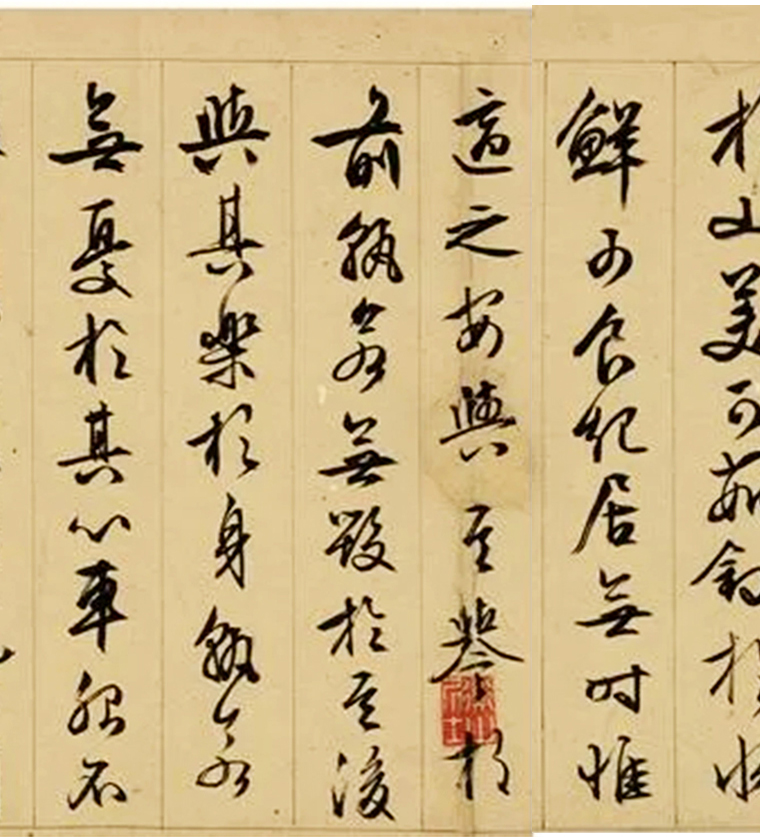 於山美可茹釣於水
鮮可食起居無時惟
適之安與其譽於
前孰若無毀於其後
與其樂於身孰若
無憂於其心車服不